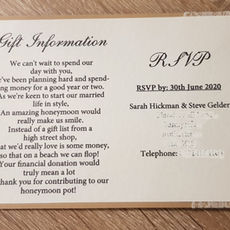 Gift Information
We can't wait to spend our
day with you,
've been planning hard and spend-
ing money for a good year or two.
As we're keen to start our married
life in style,
An amazing honeymoon would
really make us smile.
Instead of a gift list from a
high street shop,
at we'd really love is some money,
so that on a beach we can flop!
Your financial donation would
truly mean a lot
hank you for contributing to our
honeymoon pot!
RSVP
RSVP by: 30th June 2020
Sarah Hickman & Steve Gelder
Telephone: